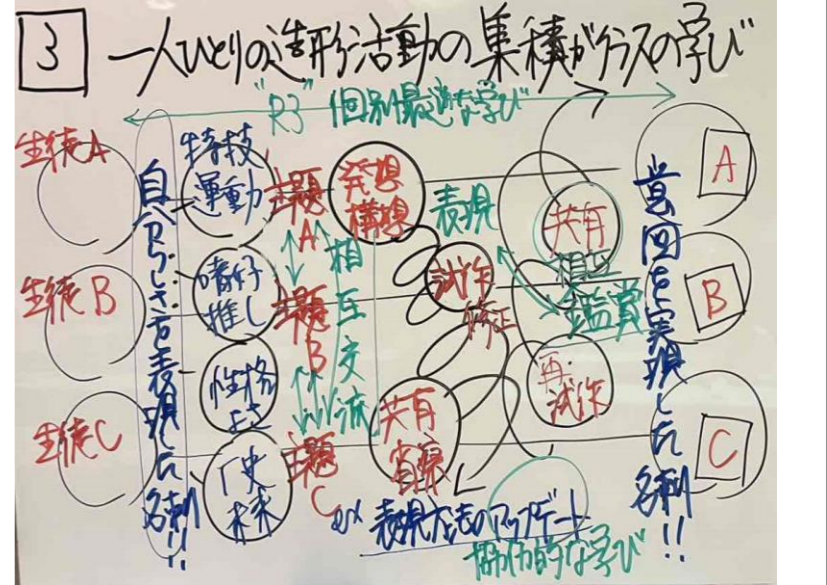 3 一人ひとりの造形活動の集積がクラスの学び
"R3" 個別最適な学び
生徒A
生徒B
生徒C
自分らしさを表現した名刺!!
特技
運動
嗜好
推し
性格
よさ
史
未来
主題
A
主題
B
主題
C
相互交流
発想
構想
表現
試作
修正
共有
省察
共有
相互
鑑賞
再・
試作
ex 表現方法のアップデート
協働的な学び
意図を実現した名刺!!
A
B
C